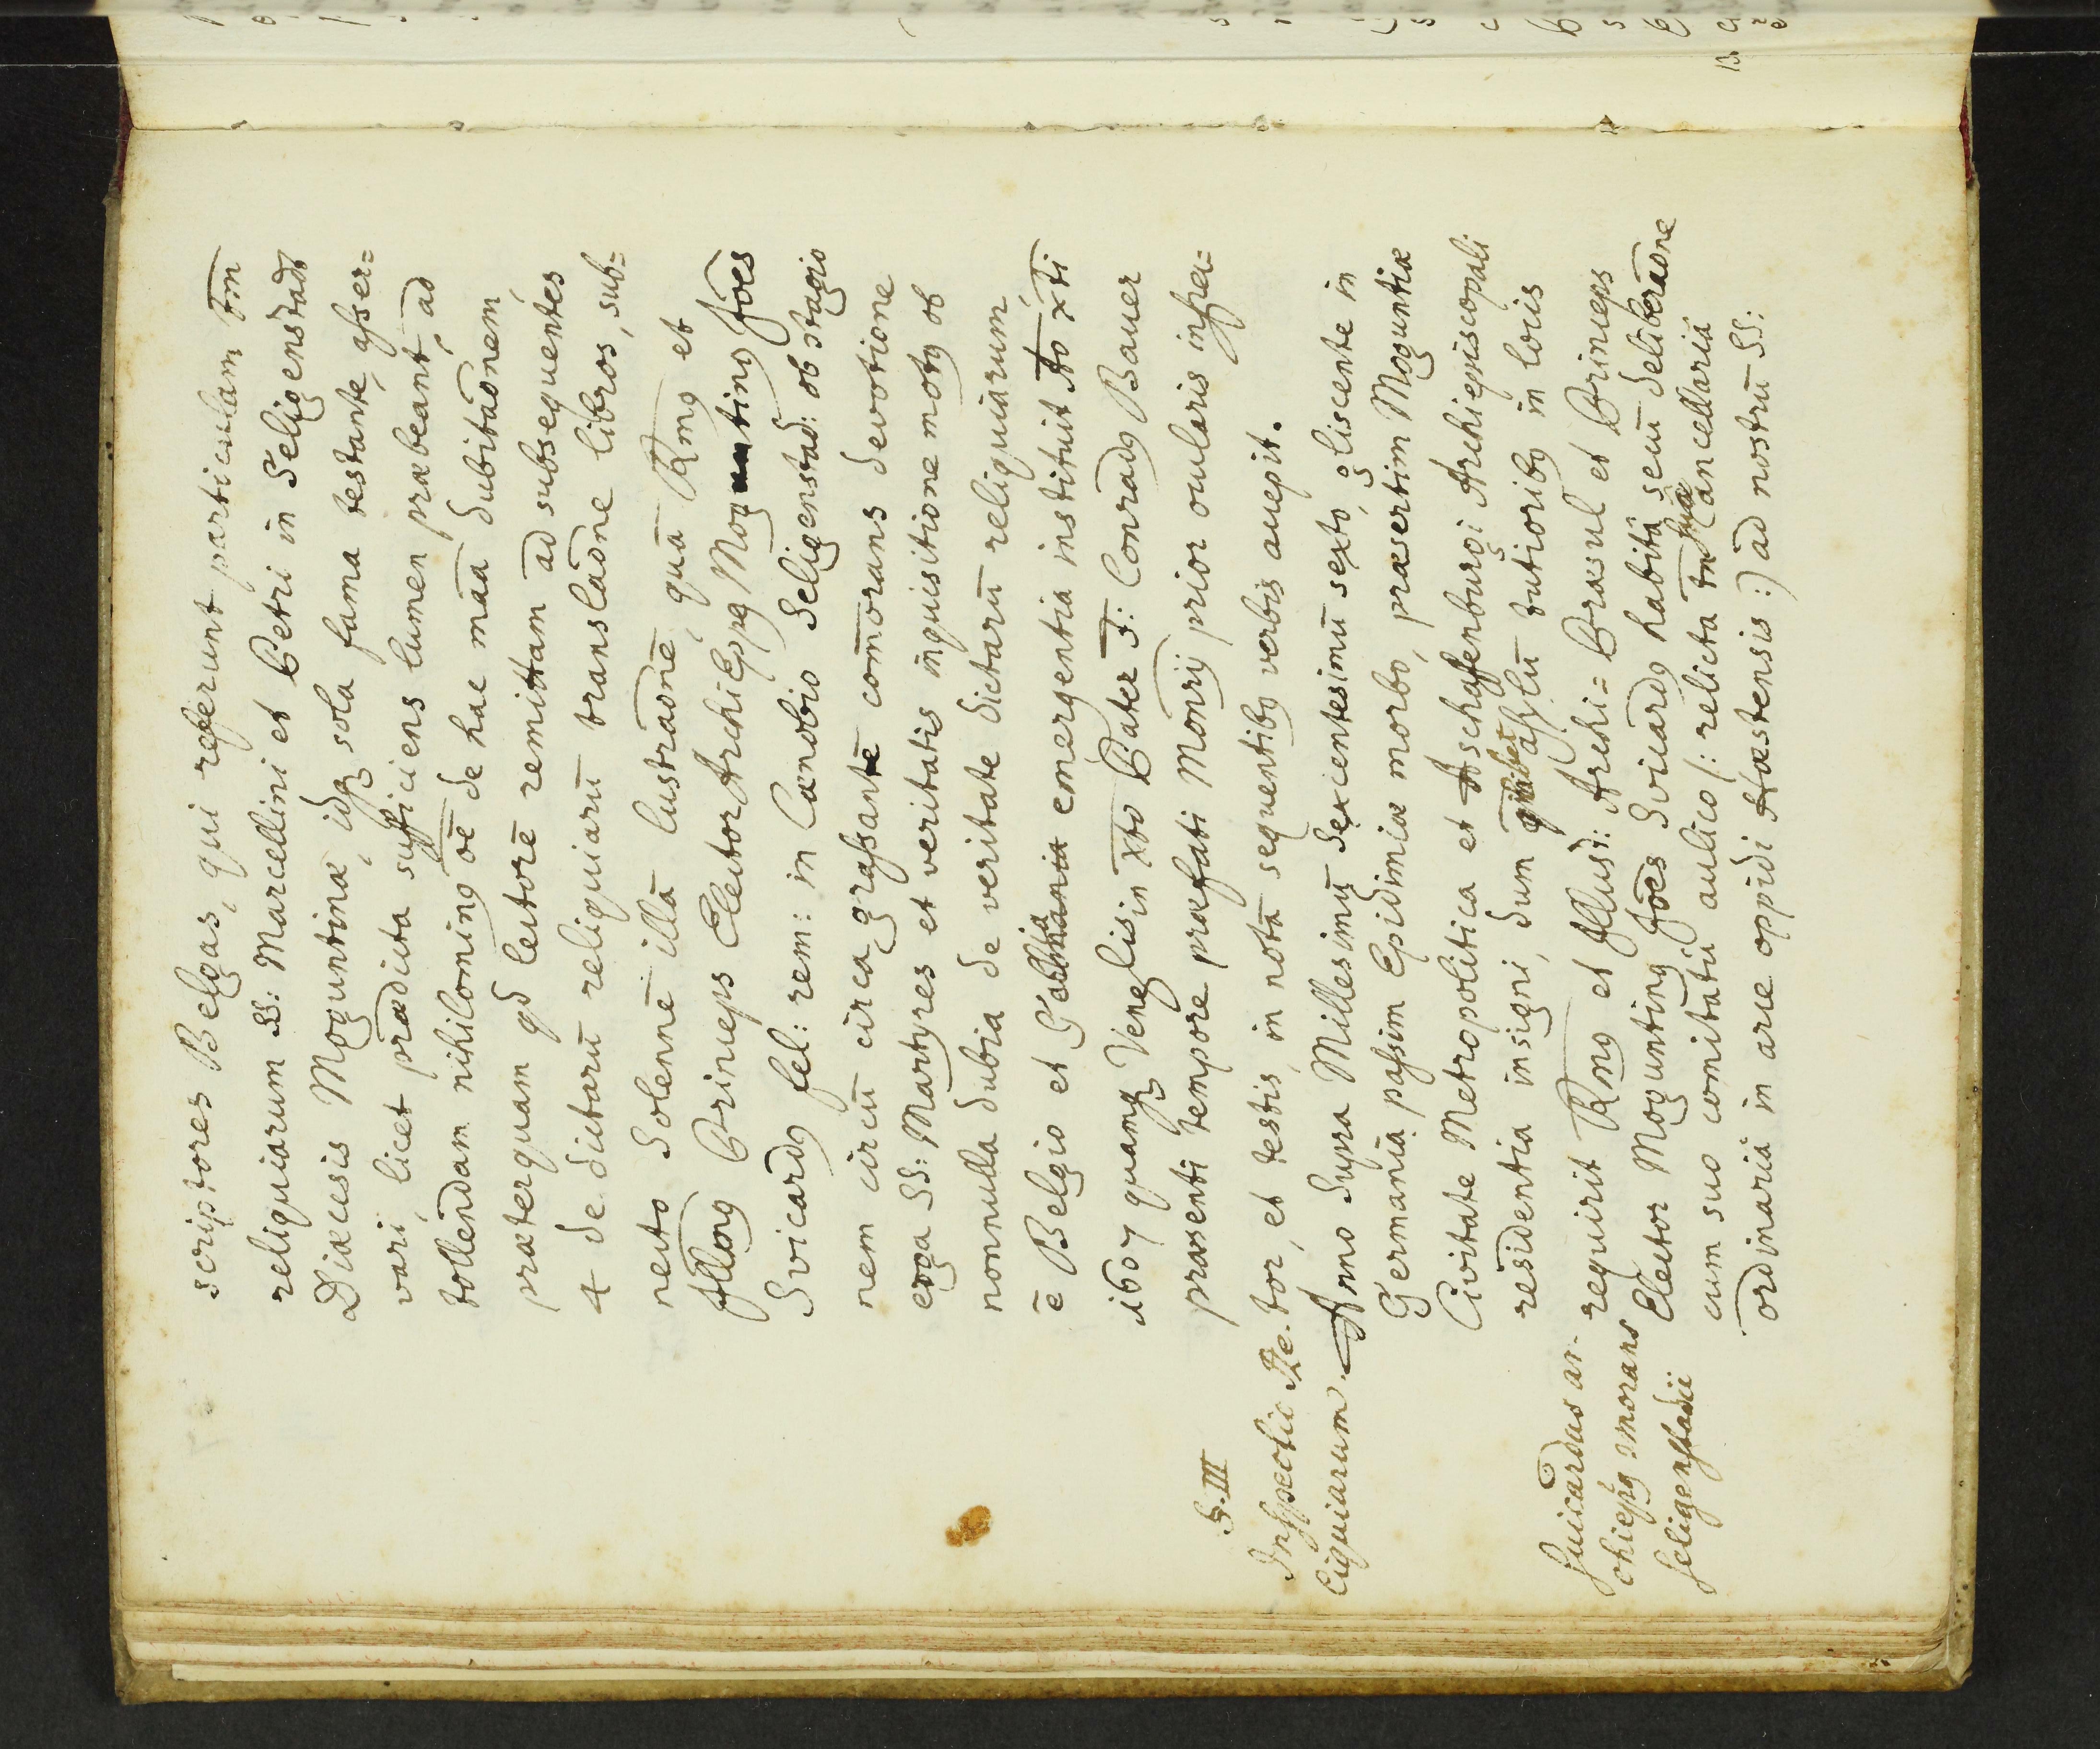 scriptores Belgas, qui referunt particulam tm̄
reliquiarum SS: Marcellini et Petri in Seligenstadt
Diæcesis Moguntinæ, idq sola fama testante, asser=
vari, licet prædicta sufficiens lumen præbeant, ad
tollendam nihilominq oē de hac māa dubitaōnem,
præterquam qd lectorē remittam ad subsequentes
4 de dictarū reliquiarū translaōne libros, sub=
necto Solennē illā lustraōnē, quā Rmq et
Illmq Princeps Elector ArchiEppq Moguntinq Joēs
Svicardq fel: rem: in Cænobio Seligenstad: ob stagio
nem circū circa grassantē com̄orans devotione
erga SS: Martyres et veritatis inquisitione motq ob
nonnulla dubia de veritate dictarū reliquiarum,
ē Belgio et Gallia emergentia instituit Ao xti
1607 quamq Vener̄lis in xto Pater F: Conradq Bauer
præsenti tempore præfati Monrij prior ocularis infra=
§. III
tor, et testis, in notā sequentibq verbis accepit.
Inspectic Re-
liquiarum.
Anno Supra Millesimū Sexcentesimū sexto, gliscente in
Germaniā passim Epidimiæ morbo, præsertim Moguntiæ
Civitate Metropolitica et Aschaffenburgi Archiepiscopali
residentia insigni, dum quilibet assylū tutioribq in locis
Suicardus ar-
chiepq morans
Seligenstadii
requirit Rmq et Illust: Archi= Præsul et Princeps
Elector Moguntinq Joēs Svicardq habitā secū deliberaōne
cum suo comitatu aulico /: relicta tn̄ suā Cancellariā
ordinariā in arce oppidi Hæstensis :/ ad nostrū SS: